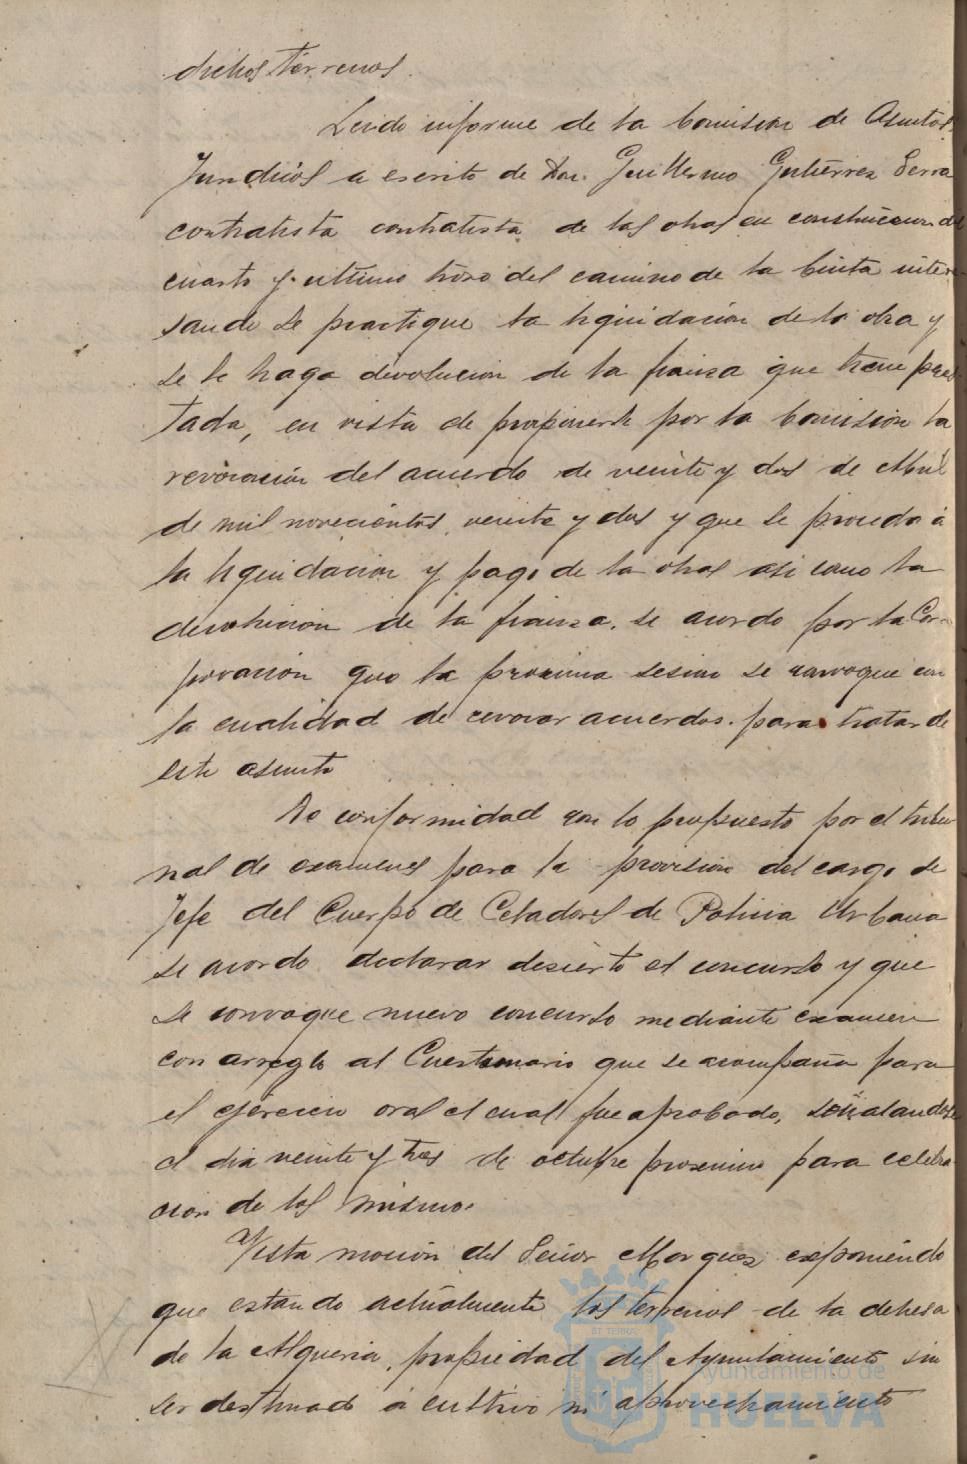 dichos terrenos.
Leido informe de la Comision de Asuntos
Juridicos a escrito de Don. Guillermo Gutierrez Serra
contratista contratista de las obras en construccion del
cuarto y ultimo trozo del camino de la Cinta intere-
sando se practique la liquidación de la obra y
se le haga devolucion de la fianza que tiene pres-
tada, en vista de proponerse por la Comision la
revocación del acuerdo de veinte y dos de Abril
de mil novecientos veinte y dos y que se proceda á
la liquidacion y pago de la obras asi como la
devolucion de la fianza, se acordo por la Cor-
poracion que la proxima sesion se convoque con
la cualidad de revocar acuerdos. para tratar de
este asunto
De conformidad con lo propuesto por el tribu-
nal de examenes para la provision del cargo de
Jefe del Cuerpo de Celadores de Policia Urbana
se acordo declarar desierto el concurso y que
se convoque nuevo concurso mediante examen
con arreglo al Cuestionario que se acompaña para
el ejercicio oral el cual fue aprobado, señalandose
el dia veinte y tres de octubre proximo para celebra-
cion de los mismos.
Vista moción del Señor Marquez exponiendo
que estando actualmente los terrenos de la dehesa
de la Alqueria, propiedad del Ayuntamiento sin
ser destinado á cultivo ni aprovechamiento
ET TERRA
Ayuntamiento de
HUELVA